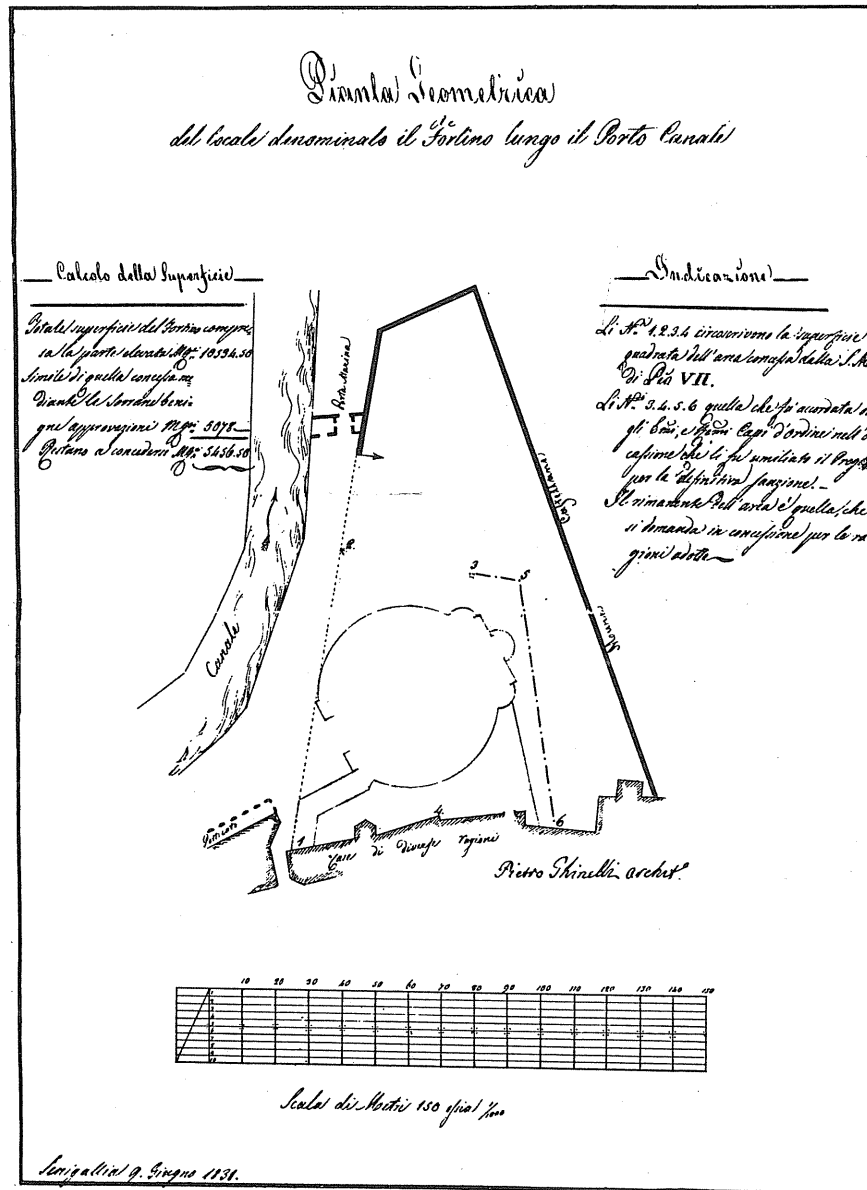 Pianta Geometrica
del locale denominato il Fortino lungo il Porto Canale
Calcolo della Superficie
Totale superficie del Fortino compre
sa la parte elevata Mqri. 10534.50
Simile di quella concessa me
diante le Sovrane beni-
gne approvazioni Mqri 5078
Restano a concedersi Mqri. 5456.50
Indicazione
Li Nri 1.2.3.4 circoscrivono la superficie
quadrata dell'area concessa dalla S.M.
di Pio VII.
Li Nri 3.4.5.6 quella che fu accordata
gli Emi, e Capi d'ordine nell'
cassione che li fu umiliato il Prog
per la definitiva sanzione.
Il rimanente dell'area è quella, che
si domanda in concessione per le ra
gioni addotte
Porta Marina
n.2.
Castellane
Mura
3
5
Canale
1
4.
6
Case di diverse ragioni
Pietro Ghinelli archit.o
10 20 30 40 50 60 70 80 90 100 110 120 130 140 150
1
2
3
4
5
6
7
8
9
10
Scala di Metri 150 ossia 1/1000
Senigallia 9. Giugno 1838.